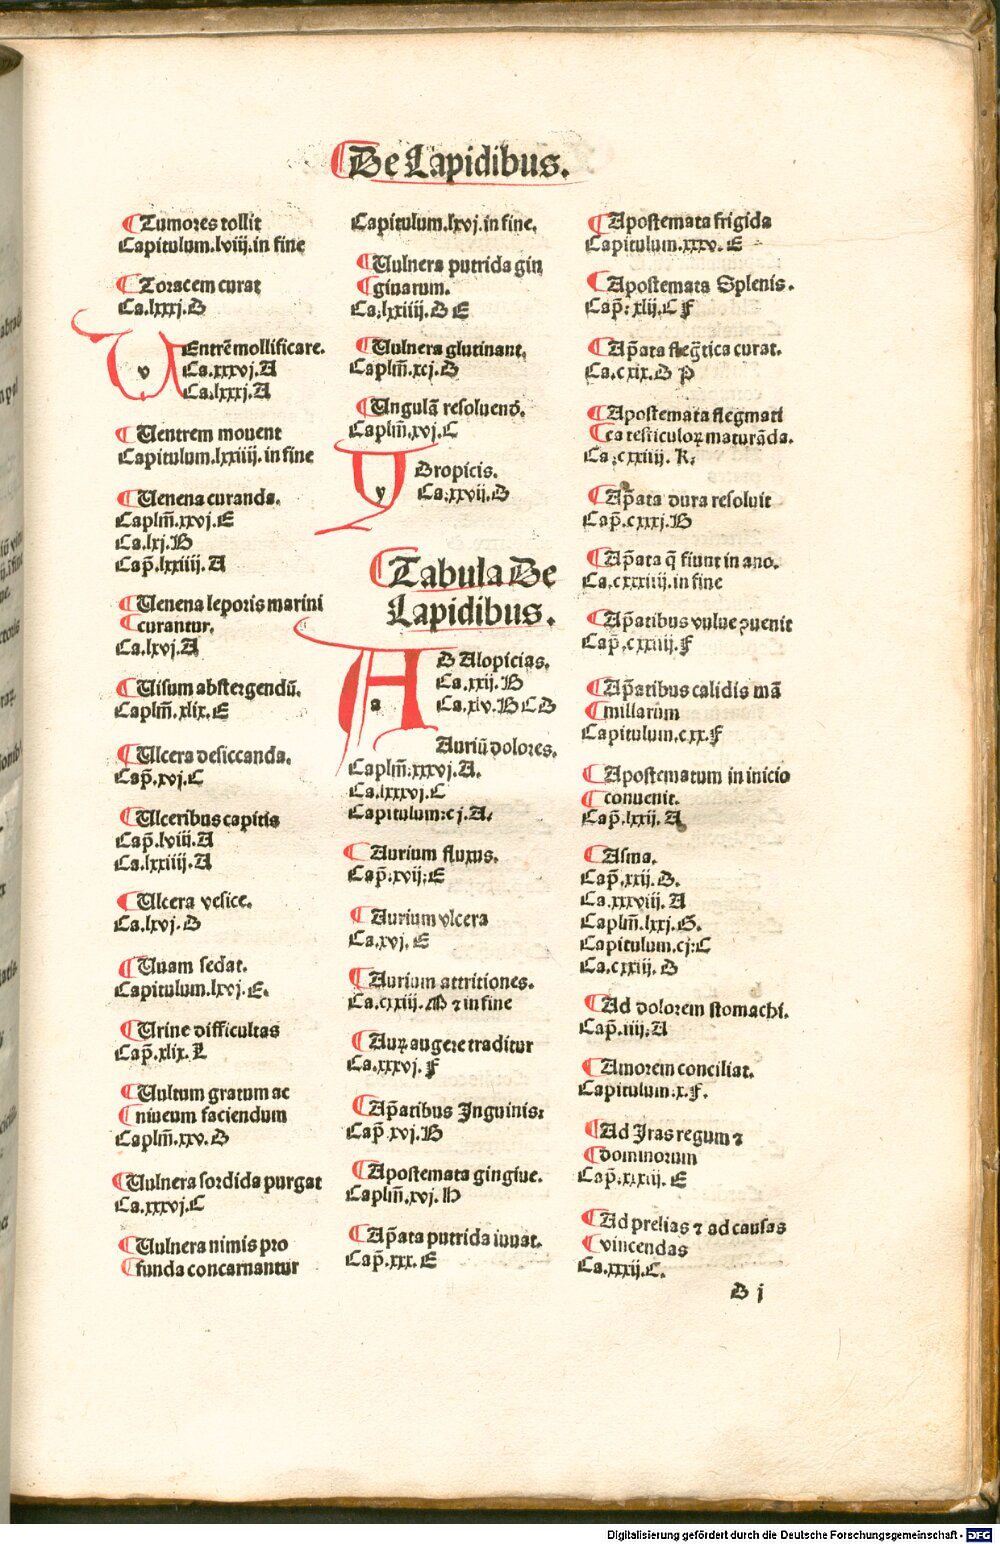 ¶De Lapidibus.
¶Tumores tollit
Capitulum.lviij.in fine
¶Toracem curat
Ca.lxxxj.D
VEntrē mollificare.
Ca.xxxvj.A
Ca.lxxxj.A
¶Uentrem mouent
Capitulum.lxxiiij.in fine
¶Uenena curanda.
Caplm̄.xxvj.E
Ca.lxj.B
Cap̄.lxxiiij.A
¶Uenena leporis marini
¶curantur.
Ca.lxvj.A
¶Uisum abstergendū.
Caplm̄.xlix.E
¶Ulcera desiccanda.
Cap̄.xvj.C
¶Ulceribus capitis
Cap̄.lviij.A
Ca.lxxiiij.A
¶Ulcera vesice.
Ca.lxvj.D
¶Uuam sedat.
Capitulum.lxvj.E.
¶Urine difficultas
Cap̄.xlix.L
¶Uultum gratum ac
¶niueum faciendum
Caplm̄.xxv.D
¶Uulnera sordida purgat
Ca.xxxvj.C
¶Uulnera nimis pro
¶funda concarnantur
Capitulum.lxvj.in fine.
¶Uulnera putrida gin
¶giuarum.
Ca.lxxiiij.D E
¶Uulnera glutinant.
Caplm̄.xcj.D
¶Ungulā resoluend.
Caplm̄.xvj.C
YDropicis.
Ca.xxvij.D
¶Tabula De
Lapidibus.
AD Alopicias.
Ca.xxij.B
Ca.xlv.B C D
Auriū dolores.
Caplm̄.xxxvj.A.
Ca.lxxxvj.C
Capitulum.cj.A.
¶Aurium fluxus.
Cap̄.xvij.E
¶Aurium vlcera
Ca.xvj.E
¶Aurium attritiones.
Ca.cxxiij.M ⁊ in fine
¶Auꝝ augere traditur
Ca.xxxvj.F
¶Ap̄atibus Inguinis.
Cap̄.xvj.B
¶Apostemata gingiue.
Caplm̄.xvj.H
¶Ap̄ata putrida iuuat.
Cap̄.xxx.E
¶Apostemata frigida
Capitulum.xxxv.E
¶Apostemata Splenis.
Cap̄.xlij.C F
¶Ap̄ata flegt̄ica curat.
Ca.cxix.D P
¶Apostemata flegmati
¶ca testiculoꝝ maturāda.
Ca.cxxiiij.K.
¶Ap̄ata dura resoluit
Cap̄.cxxxj.B
¶Ap̄ata q̄ fiunt in ano.
Ca.cxxxiiij.in fine
¶Ap̄atibus vulue ꝯuenit
Cap̄.cxxiiij.F
¶Ap̄atibus calidis mā
¶millarum
Capitulum.cxx.F
¶Apostematum in inicio
¶conuenit.
Cap̄.lxxij.A
¶Asma.
Cap̄.xxij.D.
Ca.xxxviij.A
Caplm̄.lxxj.G.
Capitulum.cj.C
Ca.cxxiij.D
¶Ad dolorem stomachi.
Cap̄.iiij.A
¶Amorem conciliat.
Capitulum.x.F.
¶Ad Iras regum ⁊
¶dominorum
Cap̄.xxxiij.E
¶Ad prelias ⁊ ad causas
¶vincendas
Ca.xxxij.C.
D j
Digitalisierung gefördert durch die Deutsche Forschungsgemeinschaft - DFG